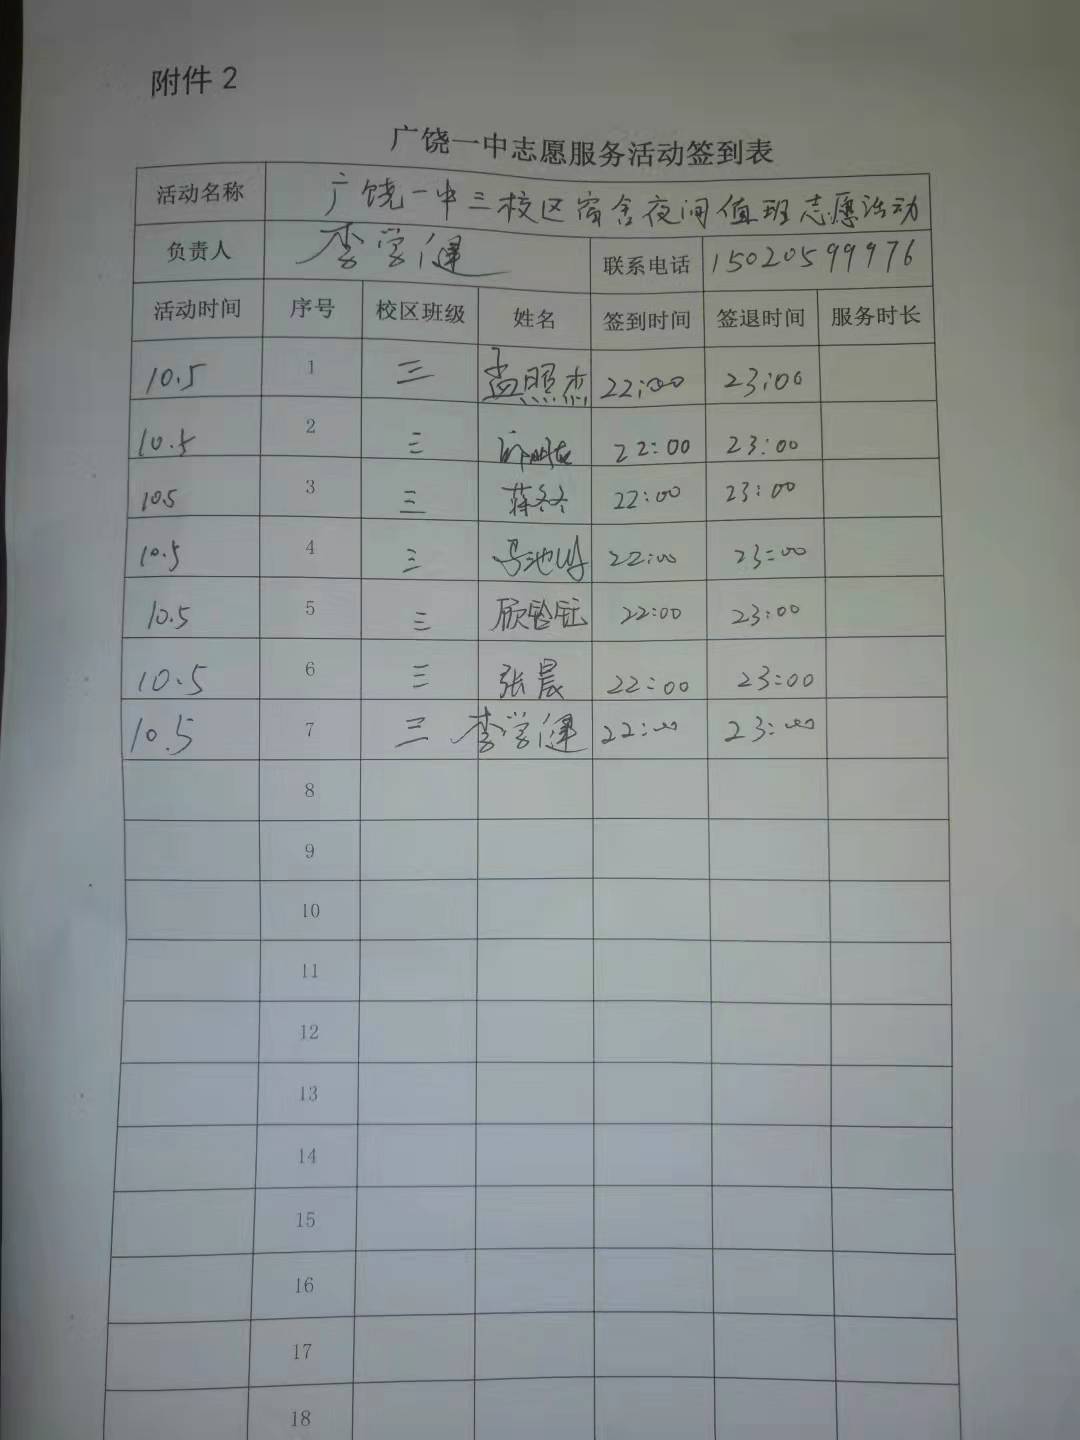 附件 2
广饶一中志愿服务活动签到表
活动名称 广饶一中三校区宿舍夜间值班志愿活动
负责人 李学健 联系电话 15020599976
活动时间 序号 校区班级 姓名 签到时间 签退时间 服务时长
10.5 1 三 孟照杰 22:00 23:00
10.5 2 三 22:00 23:00
10.5 3 三 蒋冬冬 22:00 23:00
10.5 4 三 22:00 23:00
10.5 5 三 22:00 23:00
10.5 6 三 张晨 22:00 23:00
10.5 7 三 李学健 22:00 23:00
8
9
10
11
12
13
14
15
16
17
18